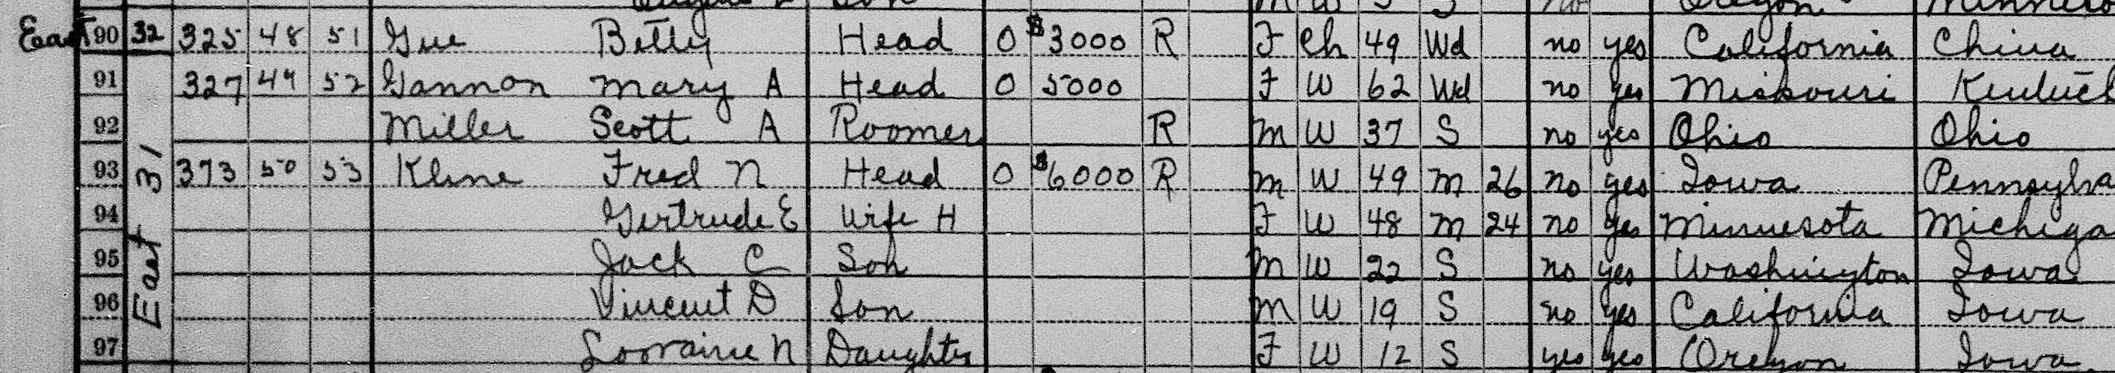 East 90 32 325 48 51 Gue Betty Head O $3000 R F Ch 49 Wd no yes California China
91 327 49 52 Gannon Mary A Head O 5000 F W 62 Wd no yes Missouri
92 Miller Scott A Roomer R M W 37 S no yes Ohio Ohio
93 373 50 53 Kline Fred N Head O $6000 R M W 49 M 26 no yes Iowa Pennsylva
94 Gertrude E Wife H F W 48 M 24 no yes Minnesota Michiga
95 Jack C Son M W 22 S no yes Washington Iowa
96 Vincent D Son M W 19 S no yes California Iowa
97 Lorraine N Daughter F W 12 S yes yes Oregon Iowa
East 31